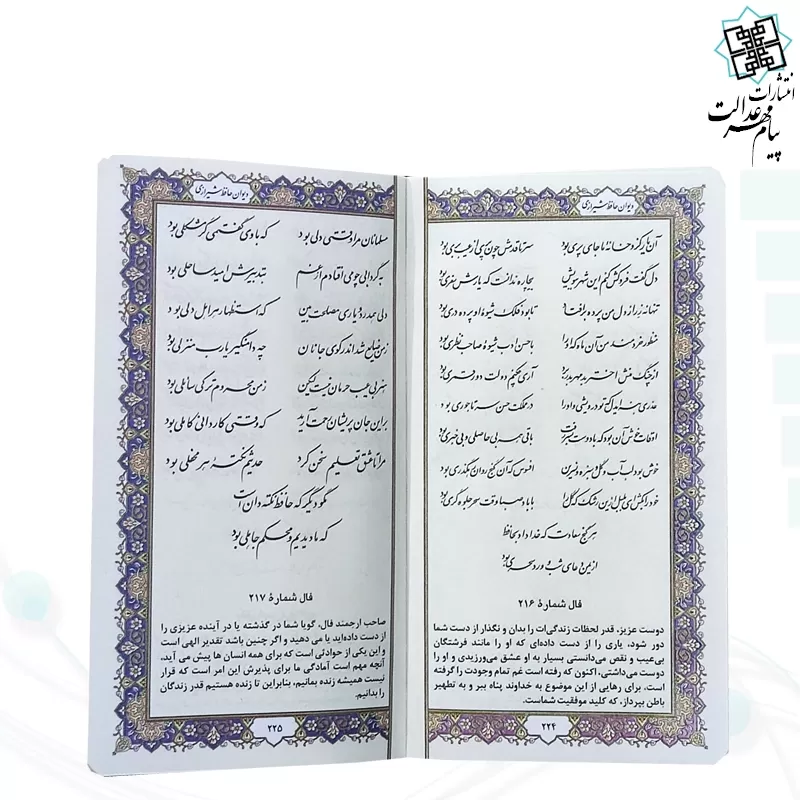 انتشارات
پیام مهر عدالت
دیوان حافظ شیرازی
آن یار کزو خانهٔ ما جای پری بود سر تا قدمش چون پری از عیب بری بود
دل گفت فروکش کنم این شهر به بویش بیچاره ندانست که یارش سفری بود
تنها نه ز راز دل من پرده برافتاد تا بود فلک شیوهٔ او پرده دری بود
منظور خردمند من آن ماه که او را با حسن ادب شیوهٔ صاحب نظری بود
از چنگ منش اختر بدمهر به در برد آری چه کنم دولت دور قمری بود
عذری بنه ای دل که تو درویشی و او را در مملکت حسن سر تاجوری بود
اوقات خوش آن بود که با دوست به سر رفت باقی همه بی حاصلی و بی خبری بود
خوش بود لب آب و گل و سبزه و نسرین افسوس که آن گنج روان رهگذری بود
خود را بکش ای بلبل از این رشک که گل را با باد صبا وقت سحر جلوه گری بود
هر گنج سعادت که خدا داد به حافظ
از یمن دعای شب و ورد سحری بود
فال شمارهٔ ۲۱۶
دوست عزیز، قدر لحظات زندگی‌ات را بدان و نگذار از دست شما
دور شود، یاری را از دست داده‌ای که او را مانند فرشتگان
بی‌عیب و نقص می‌دانستی بسیار به او عشق می‌ورزیدی و او را
دوست می‌داشتی، اکنون که رفته است غم تمام وجودت را گرفته
است، برای رهایی از این موضوع به خداوند پناه ببر و به تطهیر
باطن بپرداز، که کلید موفقیت شماست.
۲۲۴
دیوان حافظ شیرازی
مسلمانان مرا وقتی دلی بود که با وی گفتمی گر مشکلی بود
به گردابی چو می افتادم از غم به تدبیرش امید ساحلی بود
دلی همدرد و یاری مصلحت بین که استظهار هر اهل دلی بود
ز من ضایع شد اندر کوی جانان چه دامنگیر یارب منزلی بود
هنر بی عیب حرمان نیست لیکن ز من محروم تر کی سائلی بود
بر این جان پریشان رحمت آرید که وقتی کاردانی کاملی بود
مرا تا عشق تعلیم سخن کرد حدیثم نکتهٔ هر محفلی بود
مگو دیگر که حافظ نکته دان است
که ما دیدیم و محکم جاهلی بود
فال شمارهٔ ۲۱۷
صاحب ارجمند فال، گویا شما در گذشته یا در آینده عزیزی را
از دست داده‌اید یا می دهید و اگر چنین باشد تقدیر الهی است
و این یکی از حوادثی است که برای همه انسان ها پیش می آید،
آنچه مهم است آمادگی ما برای پذیرش این امر است که قرار
نیست همیشه زنده بمانیم، بنابراین تا زنده هستیم قدر زندگان
را بدانیم.
۲۲۵